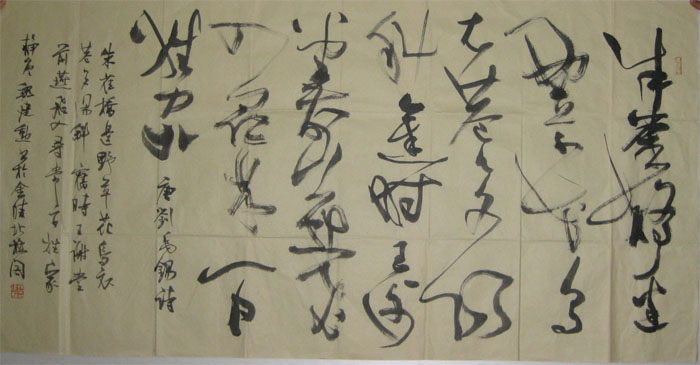 朱雀橋边
野草花乌
衣巷口夕阳
斜舊时王谢
堂前燕飞入
寻常百
姓家
唐劉禹錫詩
朱雀橋边野草花乌衣
巷口夕阳斜舊时王謝堂
前燕飛入寻常百姓家
於金陵北